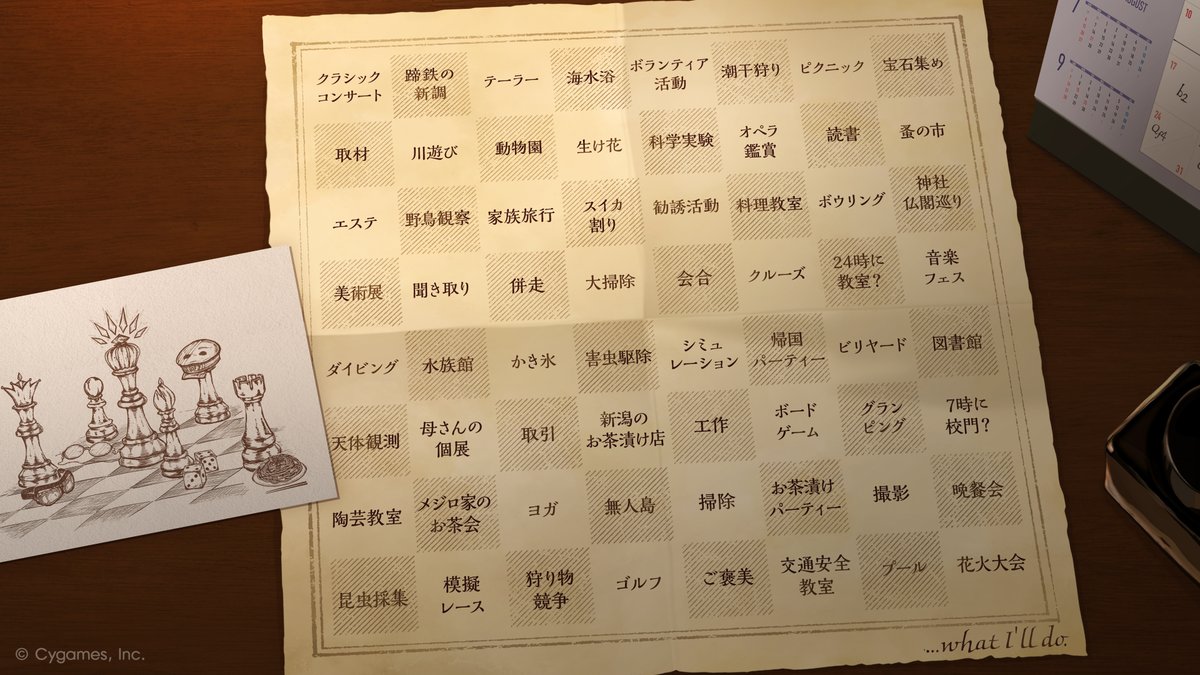 クラシック
コンサート
蹄鉄の
新調
テーラー
海水浴
ボランティア
活動
潮干狩り
ピクニック
宝石集め
取材
川遊び
動物園
生け花
科学実験
オペラ
鑑賞
読書
蚤の市
エステ
野鳥観察
家族旅行
スイカ
割り
勧誘活動
料理教室
ボウリング
神社
仏閣巡り
美術展
聞き取り
併走
大掃除
会合
クルーズ
24時に
教室?
音楽
フェス
ダイビング
水族館
かき氷
害虫駆除
シミュ
レーション
帰国
パーティー
ビリヤード
図書館
天体観測
母さんの
個展
取引
新潟の
お茶漬け店
工作
ボード
ゲーム
グラン
ピング
7時に
校門?
陶芸教室
メジロ家の
お茶会
ヨガ
無人島
掃除
お茶漬け
パーティー
撮影
晩餐会
昆虫採集
模擬
レース
狩り物
競争
ゴルフ
ご褒美
交通安全
教室
プール
花火大会
...what I'll do.
AUGUST
7
9
10
17
b2
24
Qf4
31
© Cygames, Inc.